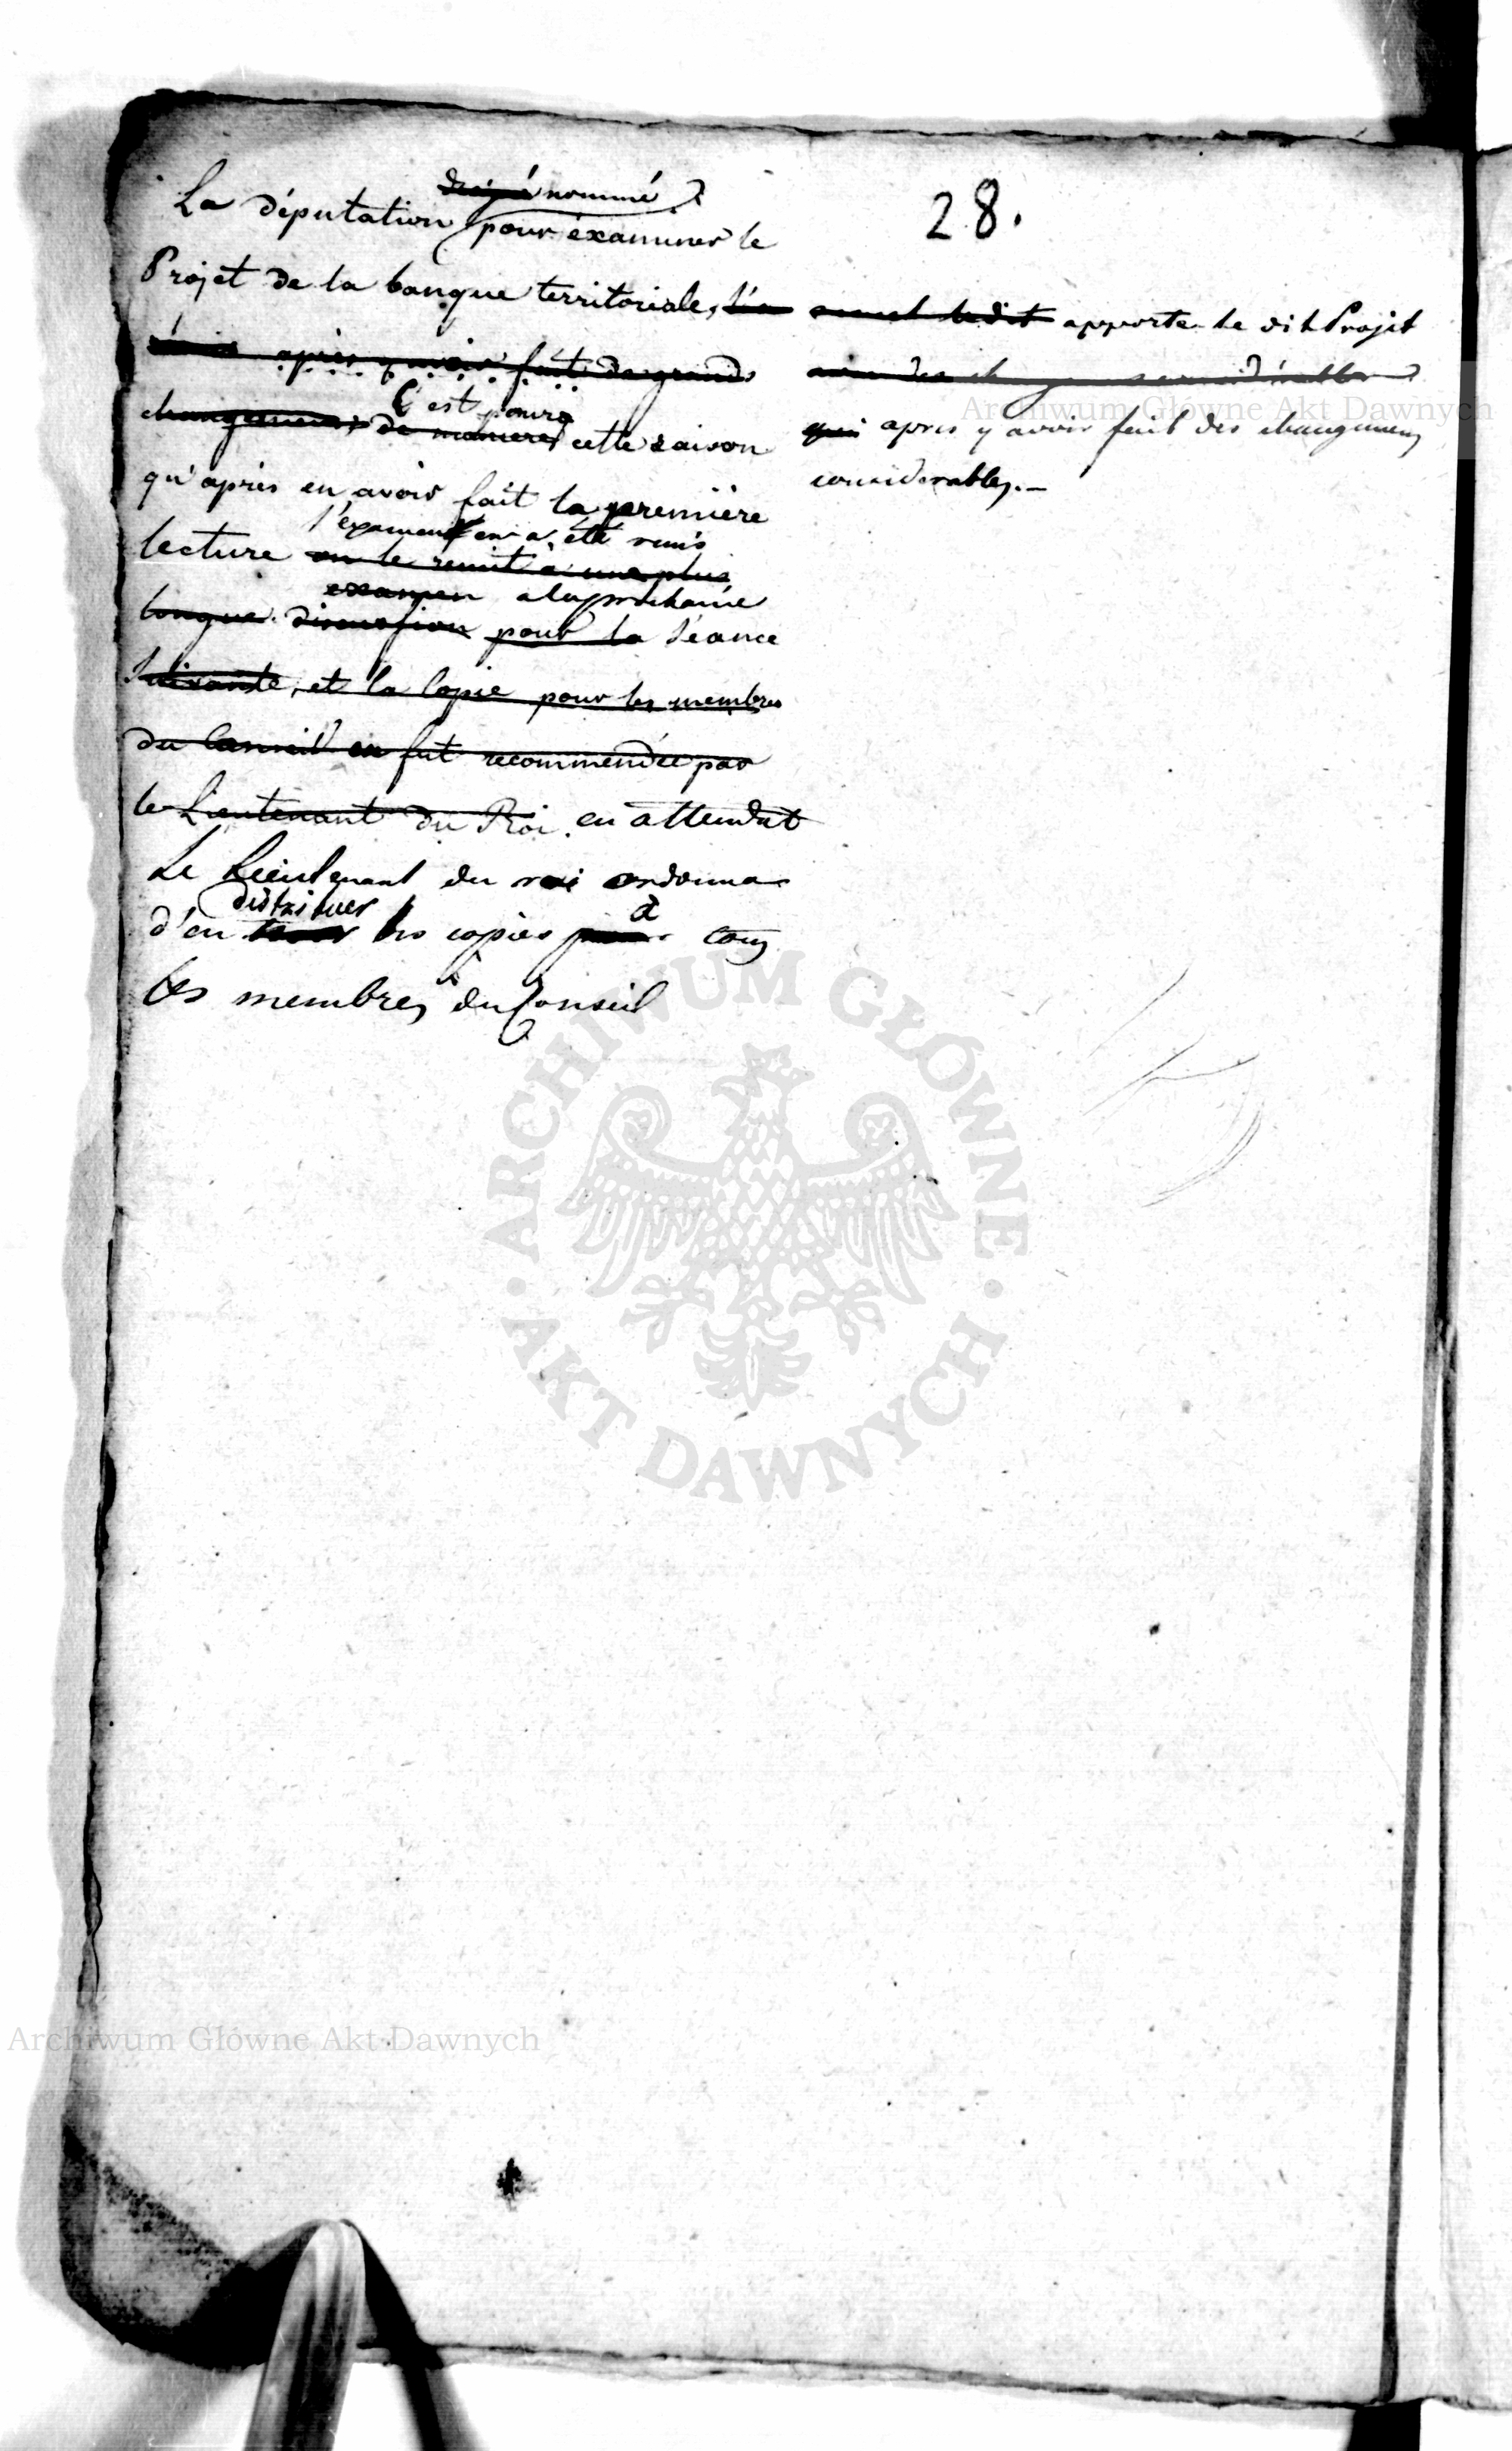 28.
nommé
La députation pour éxaminer le
Projet de la banque territoriale,
après y avoir fait de grands
C'est pour
changements de maniere cette raison
qu'après en avoir fait la premiére
l'examen en a été remis
lecture on le remit à une plus
examen a la prochaine
longue discussion pour la Séance
Suivante, et la Copie pour les membres
du Conseil en fut recommendée par
le Lieutenant du Roi. en attendat
Le Lieutenant du roi ordonna
distribuer à
d'en les copies tous
les membres du Conseil
le dit apporte le dit Projet
après y avoir fait des changemens
considerables.—
Archiwum Główne Akt Dawnych
ARCHIWUM GŁÓWNE
AKT DAWNYCH
Archiwum Główne Akt Dawnych